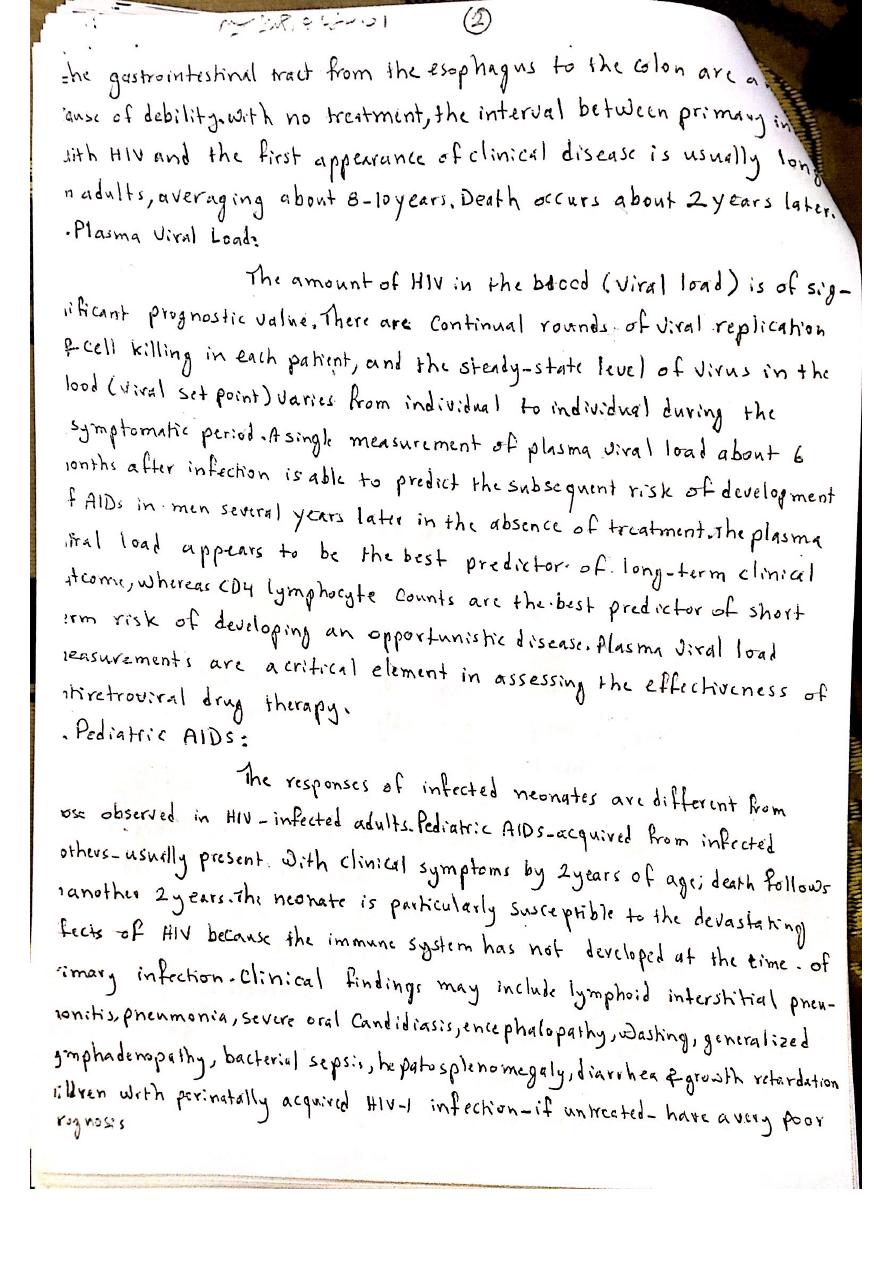 ②
:he gastrointestinal tract from the esophagus to the colon are a
ause of debility.with no treatment,the interval between primary in
sith HIV and the first appearance of clinical disease is usually long
n adults,averaging about 8-10 years.Death occurs about 2 years later.
.Plasma Viral Load:
The amount of HIV in the blood (viral load) is of sig-
ificant prognostic value.There are continual rounds of viral replication
& cell killing in each patient, and the steady-state level of virus in the
lood (viral set point) varies from individual to individual during the
symptomatic period.A single measurement of plasma viral load about 6
onths after infection is able to predict the subsequent risk of development
f AIDs in men several years later in the absence of treatment.The plasma
iral load appears to be the best predictor of long-term clinical
tcome, whereas CD4 lymphocyte counts are the best predictor of short
erm risk of developing an opportunistic disease.Plasma viral load
easurements are a critical element in assessing the effectiveness of
ntiretroviral drug therapy.
. Pediatric AIDS:
The responses of infected neonates are different from
ose observed in HIV-infected adults.Pediatric AIDS-acquired from infected
others-usually present with clinical symptoms by 2 years of age; death follows
n another 2 years.The neonate is particularly susceptible to the devastating
fects of HIV because the immune system has not developed at the time of
imary infection.Clinical findings may include lymphoid interstitial pneu-
onitis, pneumonia, severe oral candidiasis, encephalopathy, wasting, generalized
ymphadenopathy, bacterial sepsis, hepatosplenomegaly, diarrhea & growth retardation
ildren with perinatally acquired HIV-1 infection-if untreated-have a very poor
rognosis